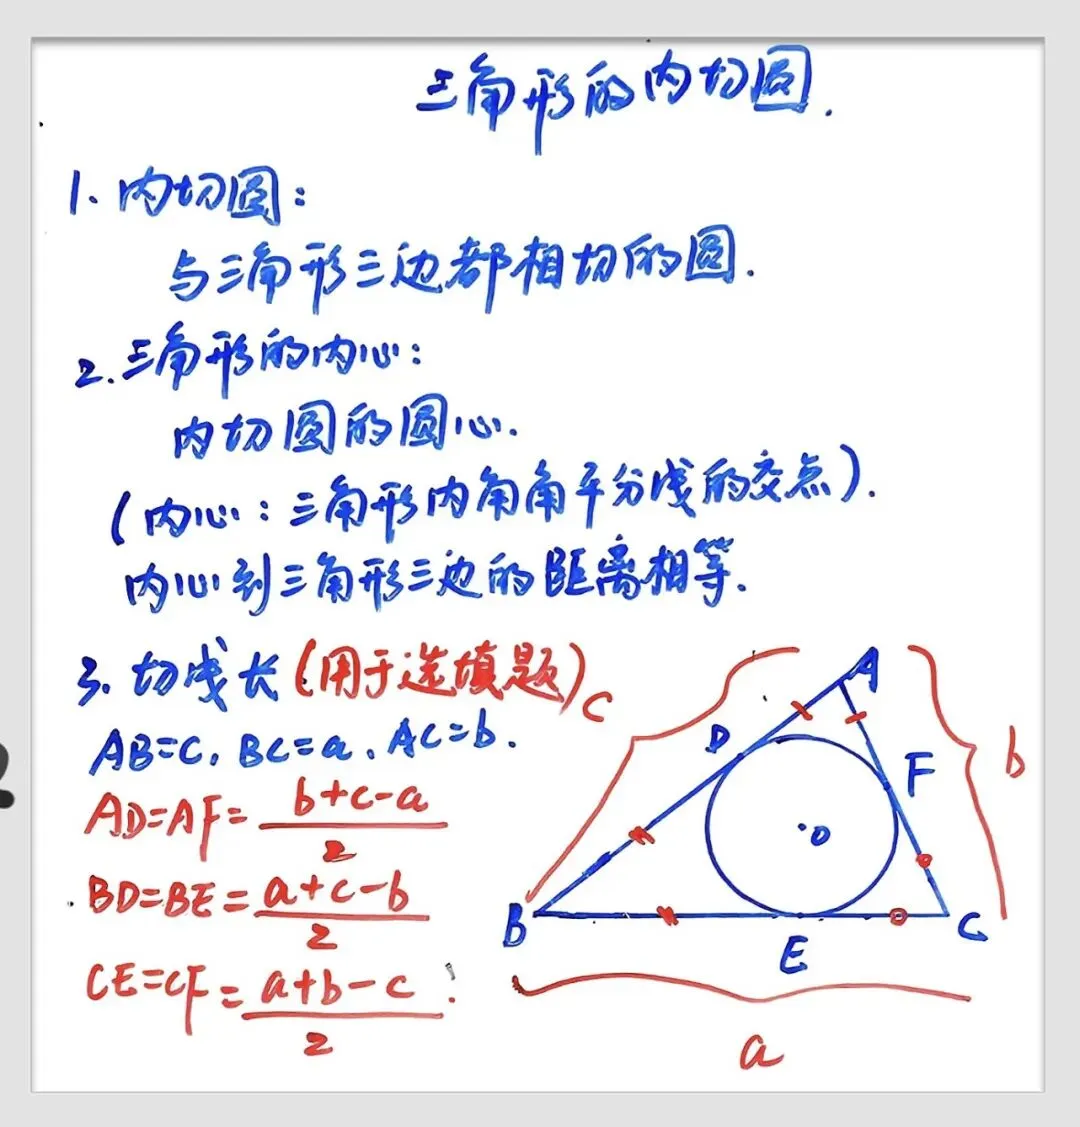 三角形的内切圆.
1. 内切圆:
与三角形三边都相切的圆.
2. 三角形的内心:
内切圆的圆心.
(内心: 三角形内角角平分线的交点).
内心到三角形三边的距离相等.
3. 切线长(用于选填题)
AB=c, BC=a, AC=b.
AD=AF= (b+c-a)/2
BD=BE= (a+c-b)/2
CE=CF= (a+b-c)/2
A
c
D
F
b
O
B
E
C
a